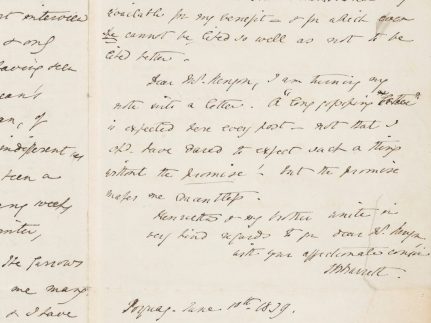 t interview
& only
having seen
can's
an, of
indifferent as
been a
ny weeks
inter,
The
me many
& I have
available for my benefit – & for which even
he cannot be liked so well as not to be
liked better.
Dear Mr. Kenyon, I am turning my
note into a letter. A "long gossiping letter"
is expected here every post – not that I
shd. have dared to expect such a thing
without the promise! – But the promise
makes me dauntless.
Henrietta & my brother unite in
very kind regards to you dear Mr. Kenyon,
with your affectionate cousin
EBBarrett
Torquay. June 10th 1839.